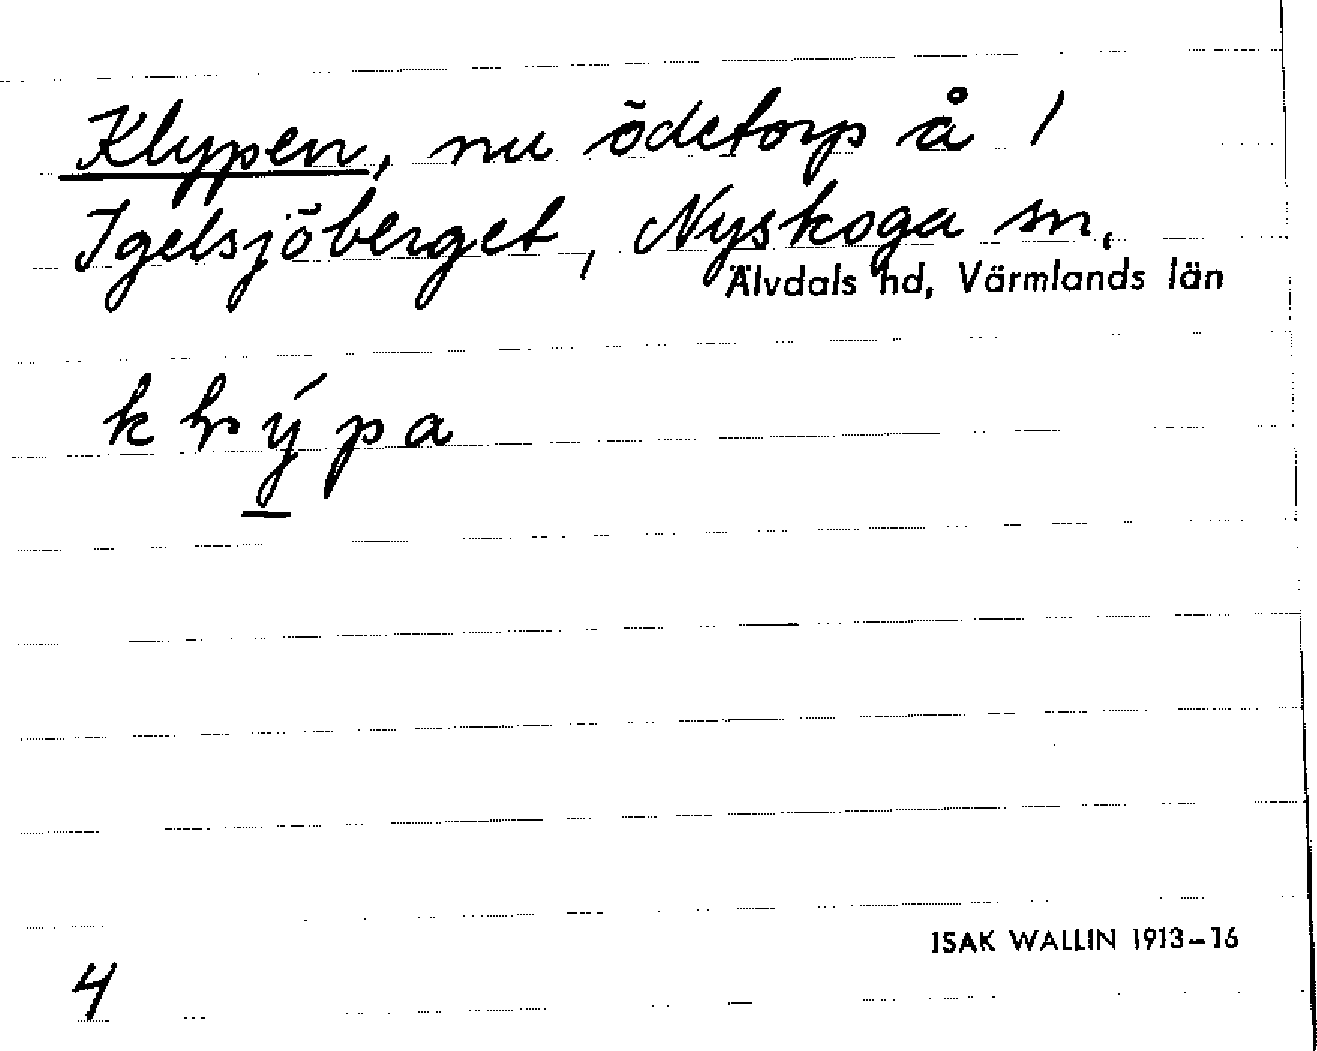 Klypen, nu ödetorp å 1
Igelsjöberget, Nyskoga sn,
Älvdals hd, Värmlands län
k lr ý p a
ISAK WALLIN 1913-16
4